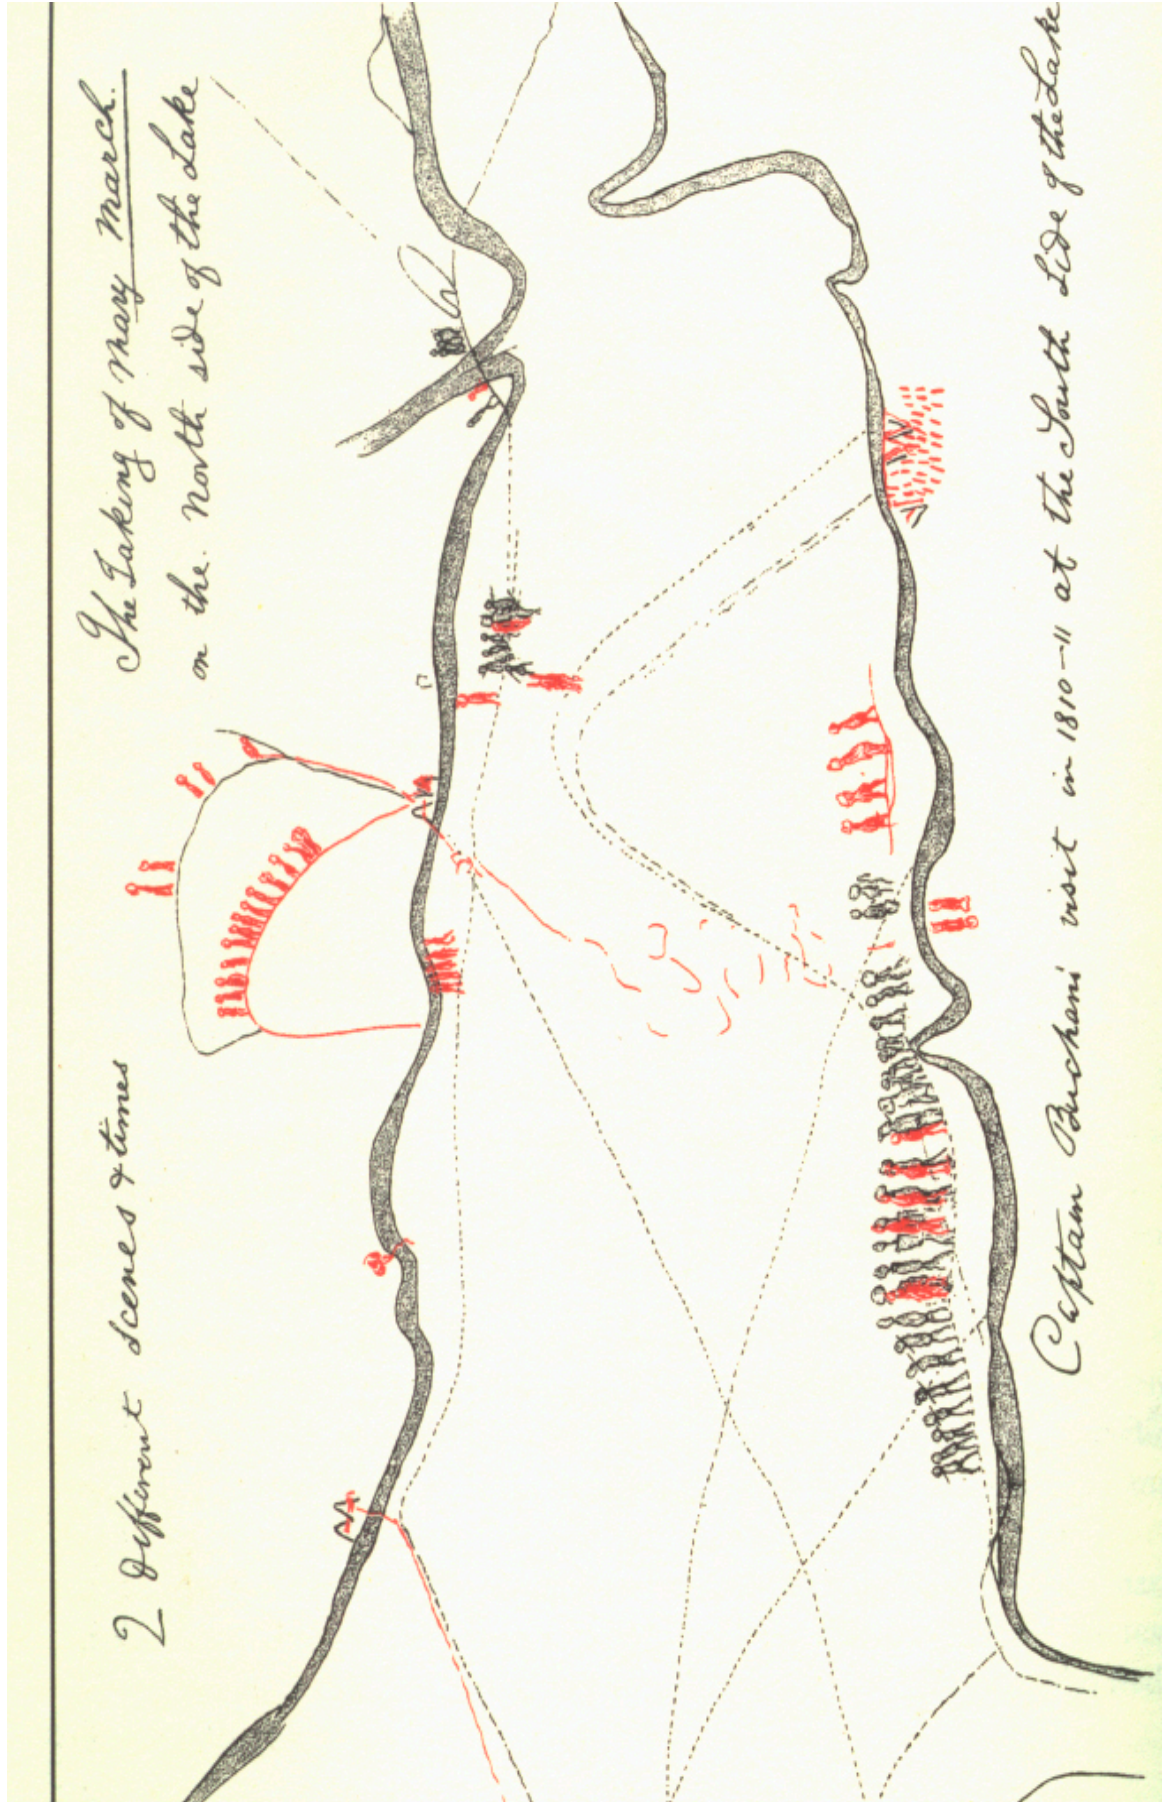 2 different scenes & times
The Taking of Mary March.
on the North side of the Lake
Captain Buchans visit in 1810-11 at the South side of the Lake